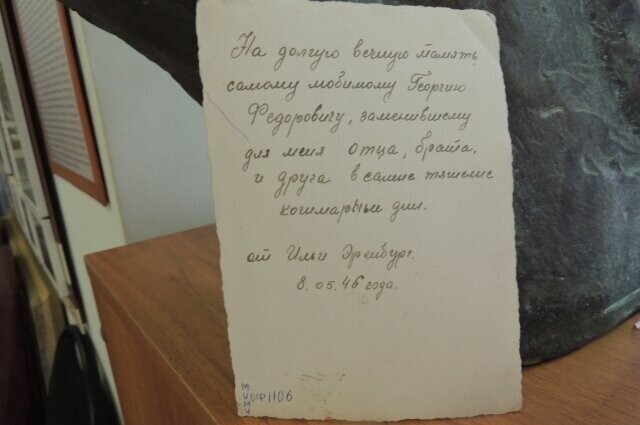 На долгую вечную память
самому любимому Георгию
Федоровичу, заменившему
для меня отца, брата,
и друга в самые тяжелые
кошмарные дни.
от Ильи Эренбург.
8.05.46 года.
1106